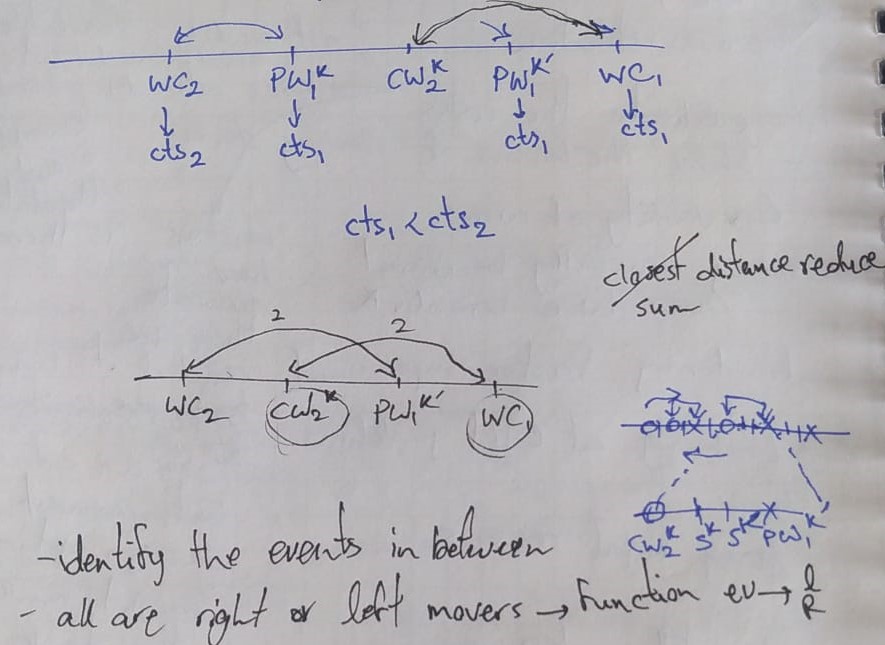 WC₂ PW₁ᴷ CW₂ᴷ PW₁ᴷ′ WC₁
cts₂ cts₁ cts₁ cts₁
cts₁ < cts₂
closest distance reduce
sum
2 2
WC₂ CW₂ᴷ PW₁ᴷ′ WC₁
CW₂ᴷ Sᴷ Sᴷ′ PW₁ᴷ′
-identify the events in between
- all are right or left movers → Function ev → l/R